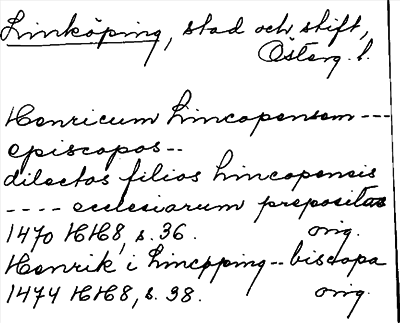 Linköping, stad och stift,
Österg. l.
Henricum Lincopensem ---
episcopos --
dilectos filios Lincopensis
---- ecclesiarum prepositus
1470 HH8, s. 36. orig.
Henrik i Lincøpping -- biscopa
1474 HH8, s. 98. orig.